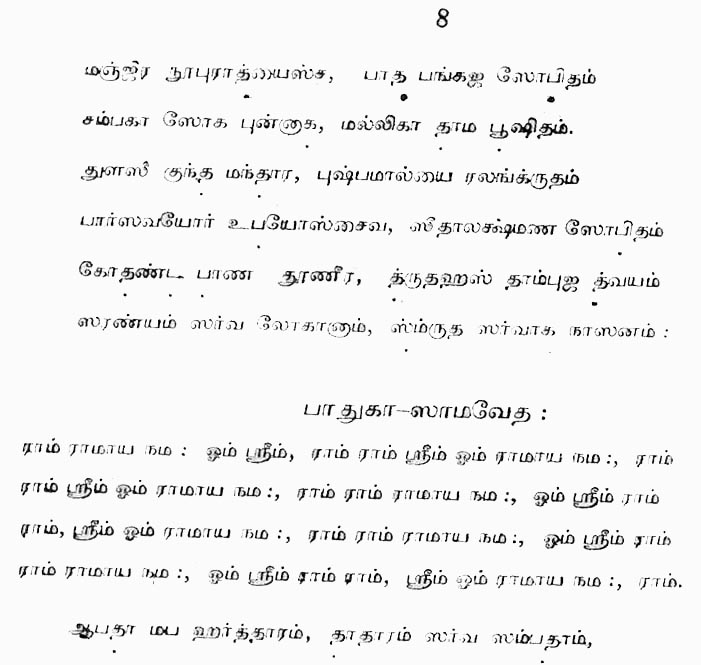 8
மஞ்ஜிர நூபுராத்யைஸ்ச, பாத பங்கஜ ஸோபிதம்
சம்பகா ஸோக புன்னாக, மல்லிகா தாம பூஷிதம்.
துளஸீ குந்த மந்தார, புஷ்பமால்யை ரலங்க்ருதம்
பார்ஸவயோர் உபயோஸ்சைவ, ஸீதாலக்ஷ்மண ஸோபிதம்
கோதண்ட பாண தூணீர, த்ருதஹஸ் தாம்புஜ த்வயம்
ஸரண்யம் ஸர்வ லோகானாம், ஸ்ம்ருத ஸர்வாக நாஸனம் :
பாதுகா-ஸாமவேத :
ராம் ராமாய நம : ஓம் ஸ்ரீம், ராம் ராம் ஸ்ரீம் ஓம் ராமாய நம :, ராம்
ராம் ஸ்ரீம் ஓம் ராமாய நம :, ராம் ராம் ராமாய நம :, ஓம் ஸ்ரீம் ராம்
ராம், ஸ்ரீம் ஓம் ராமாய நம :, ராம் ராம் ராமாய நம :, ஓம் ஸ்ரீம் ராம்
ராம் ராமாய நம :, ஓம் ஸ்ரீம் ராம் ராம், ஸ்ரீம் ஓம் ராமாய நம :, ராம்.
ஆபதா மப ஹர்த்தாரம், தாதாரம் ஸர்வ ஸம்பதாம்,